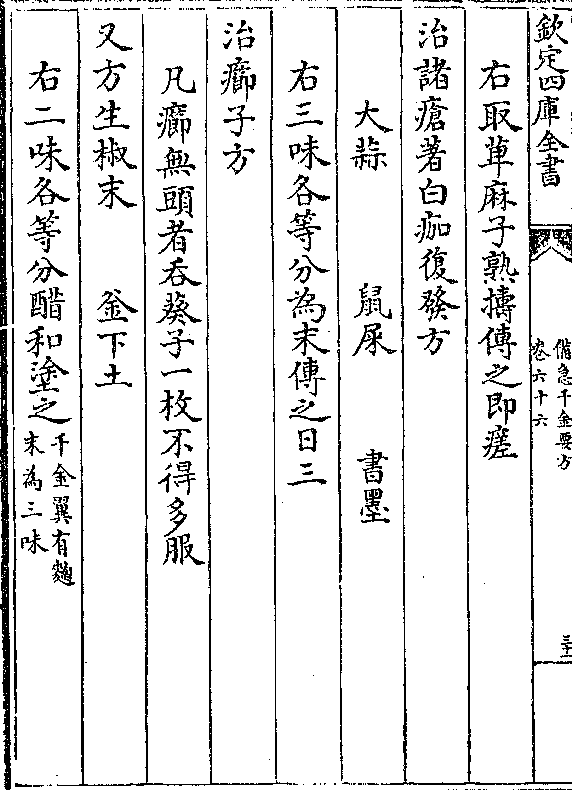 欽定四庫全書
備急千金要方
卷六十六
三十一
右取萆麻子熟擣傅之即瘥
治諸瘡著白痂復發方
大蒜　鼠屎　書墨
右三味各等分為末傅之日三
治癤子方
凡癤無頭者吞葵子一枚不得多服
又方生椒末　釜下土
右二味各等分醋和塗之千金翼有麵
末為三味